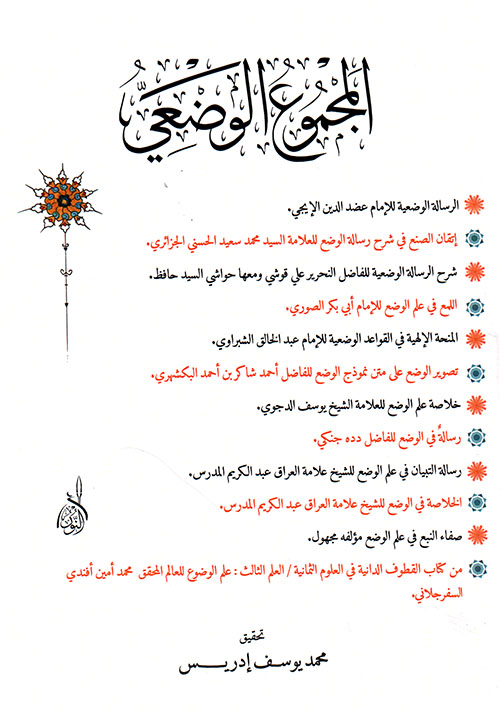 المجموع الوضعي
الرسالة الوضعية للإمام عضد الدين الإيجي.
إتقان الصنع في شرح رسالة الوضع للعلامة السيد محمد سعيد الحسني الجزائري.
شرح الرسالة الوضعية للفاضل النحرير علي قوشي ومعها حواشي السيد حافظ.
اللمع في علم الوضع للإمام أبي بكر الصوري.
المنحة الإلهية في القواعد الوضعية للإمام عبد الخالق الشبراوي.
تصوير الوضع على متن نموذج الوضع للفاضل أحمد شاكر بن أحمد البكشهري.
خلاصة علم الوضع للعلامة الشيخ يوسف الدجوي.
رسالةٌ في الوضع للفاضل دده جنكي.
رسالة التبيان في علم الوضع للشيخ علامة العراق عبد الكريم المدرس.
الخلاصة في الوضع للشيخ علامة العراق عبد الكريم المدرس.
صفاء النبع في علم الوضع مؤلفه مجهول.
من كتاب القطوف الدانية في العلوم الثمانية / العلم الثالث : علم الوضوع للعالم المحقق محمد أمين أفندي
السفرجلاني.
تحقيق
محمد يوسف إدريس